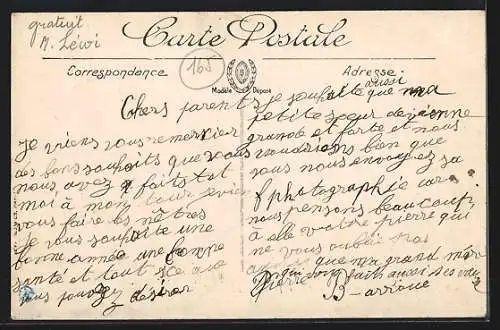 gratuit
M. Léwi
Carte Postale
165
Correspondance
Modèle Déposé
Adresse
Chers parents
Je viens vous remercier
des bons souhaits que vous
nous avez faits et
moi à mon tour viens
vous faire les nôtres
Je vous souhaite une
bonne année une bonne
santé et tout ce que
vous pouvez désirer
je souhaite aussi que ma
petite sœur devienne
grande et forte et nous
voudrions bien que
vous nous envoyez sa
photographie car
nous pensons beaucoup
à elle votre pierre qui
ne vous oublie pas
que ma grand mère
qui fait aussi
Pierre Barrioue